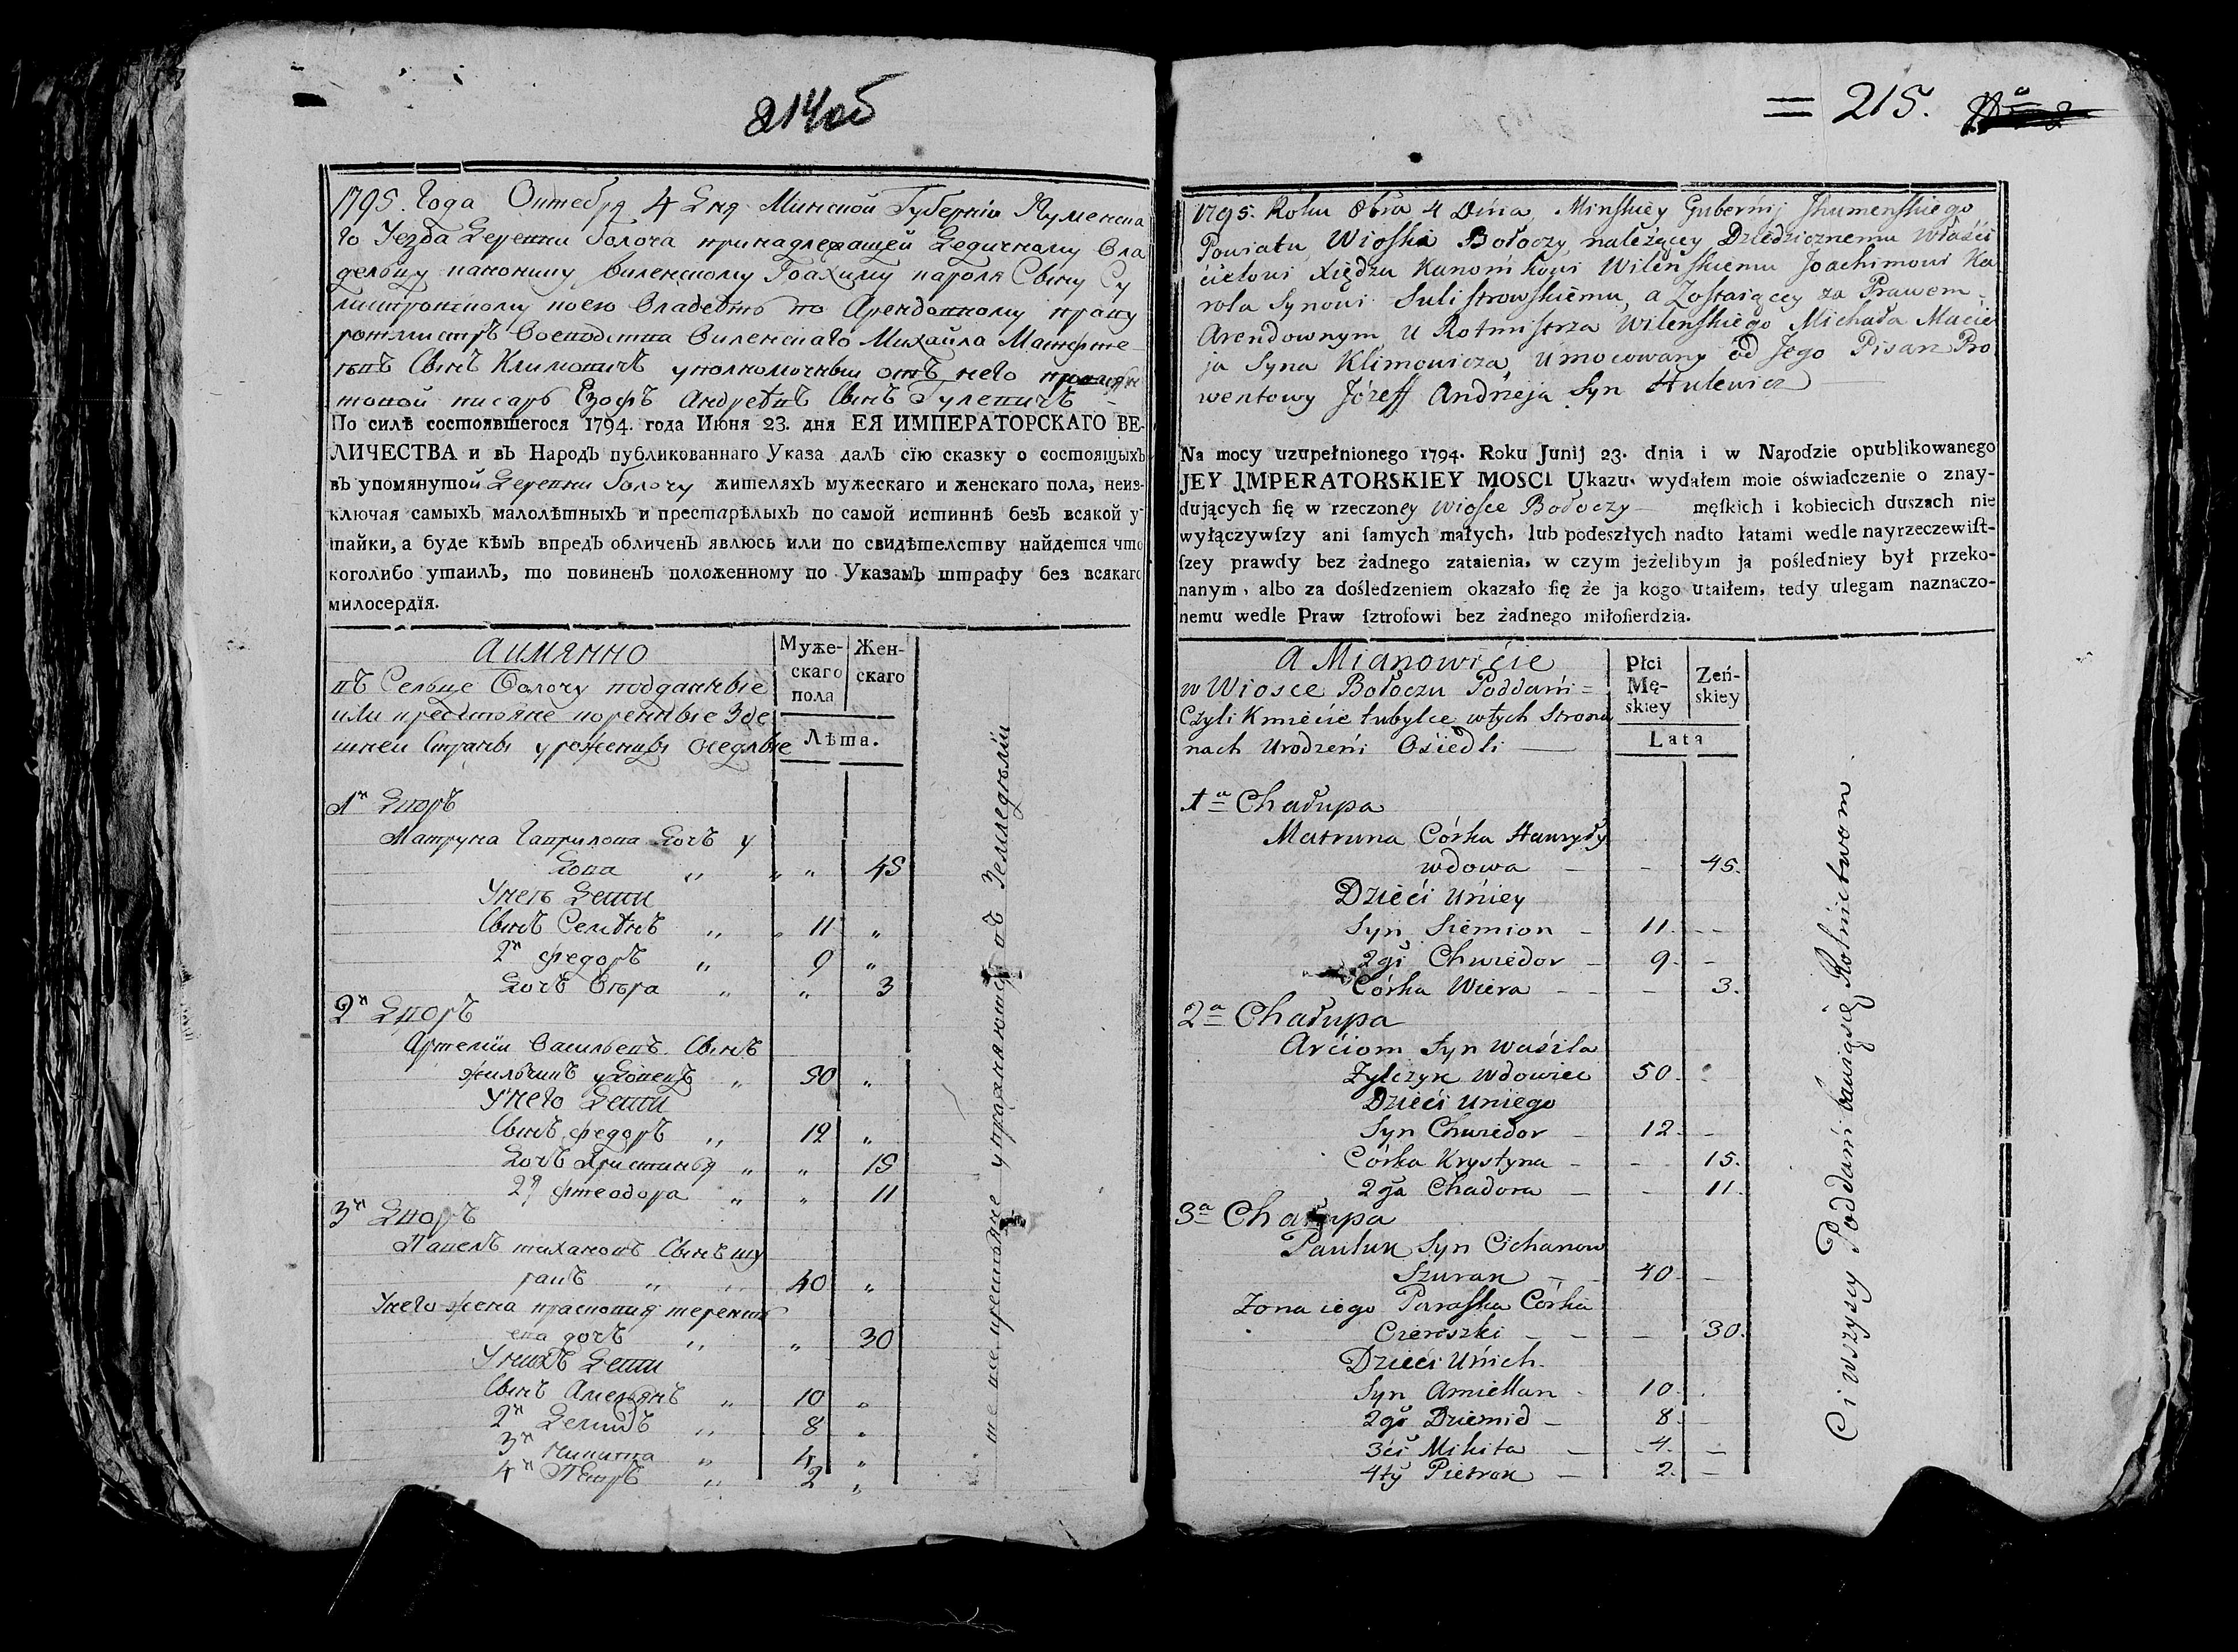 214об
1795. Года Октебря 4 Дня Минской Губернїи Игуменска
го Уезда Деревни Болоча принадлежащей Дедичному Вла
дельцу каноннику Виленскому Іоахиму кароля Сыну Су
листровскому коею Владеетъ по Арендовному праву
ротмистръ Воеводства Виленскаго Михайла Матфее
въ Сынъ Климовичъ уполномочный отъ него
писарь Езофъ Андреевъ Сынъ Гулевичъ
По силѣ состоявшегося 1794. года Июня 23. дня ЕЯ ИМПЕРАТОРСКАГО ВЕ-
ЛИЧЕСТВА и въ Народъ публикованнаго Указа далъ сїю сказку о состоящыхъ
въ упомянутой Деревни Болочу жителяхъ мужескаго и женскаго пола, неиз-
ключая самыхъ малолѣтныхъ и престарѣлыхъ по самой истиннѣ безъ всякой у-
тайки, а буде кѣмъ впредъ обличенъ явлюсь или по свидѣтелству найдется что
коголибо утаилъ, то повиненъ положенному по Указамъ штрафу без всякаго
милосердїя.
Аимянно
въ Сельце Болочу подданные
или крестьяне коренные Зде
шней Страны уроженцы Оседлые
Муже-
скаго
пола
Жен-
скаго
Лѣта.
1й Дворъ
Матруна Гаврилова Дочь у
дова " " " 45
Унеѣ Дети
Сынъ Семѣнъ " 11 "
2й Федоръ " 9 "
Дочь Вѣра " " 3
2й Дворъ
Артемїи Васильевъ Сынъ
Жильчикъ удовецъ " 50 "
Унего Дети
Сынъ Федоръ " 12 "
Дочь Христинья " " 15
2я Фтеодора " " 11
3й Дворъ
Павелъ тихановъ Сынъ шу
ракъ " " 40 "
Унего жена прасковия терентъ
ева дочь " " 30
Унихъ Дети
Сынъ Амельянъ " 10 "
2й Демидъ " 8 "
3й Никита " 4 "
4й Петръ " 2 "
= 215.
1795. Roku 8bra 4 Dnia, Minskiey Gubernij Jhumenskiego
Powiatu, Wioski Bołoczy należącey Dziedzicznemu Właści
cielowi Xiędzu Kanonikowi Wilenskiemu Joachimowi Ka
rola Synowi Sulistrowskiemu, a Zostaiącey za Prawem
Arendownym u Rotmistrza Wilenskiego Michała Macie
ja Syna Klimowicza, Umocowany od Jego Pisarz Pro
wentowy Józeff Andrzeja Syn Hulewicz
Na mocy uzupełnionego 1794. Roku Junij 23. dnia i w Narodzie opublikowanego
JEY JMPERATORSKIEY MOSCI Ukazu, wydałem moie oświadczenie o znay-
dujących się w rzeczoney wiosce Bołoczy męskich i kobiecich duszach nie
wyłączywszy ani samych małych, lub podeszłych nadto latami wedle nayrzeczewist-
szey prawdy bez żadnego zataienia, w czym jeżelibym ja pośledniey był przeko-
nanym, albo za dośledzeniem okazało się że ja kogo utaiłem, tedy ulegam naznaczo-
nemu wedle Praw sztrofowi bez żadnego miłosierdzia.
a Mianowicie
w Wiosce Bołoczu Poddani =
Czyli Kmiecie tubylce wtych Strona
nach Urodzeni Osiedli
Płci
Mę-
skiey
Zeń-
skiey
Lata
1a Chałupa
Matruna Córka Hawryły
wdowa - - 45.
Dzieci Uniey
Syn Siemion - 11. -
2gi Chwiedor - 9. -
Córka Wiera - - 3.
2a Chałupa
Arciom Syn Wasila
Żylczyk Wdowiec 50.
Dzieci Uniego
Syn Chwiedor - 12. -
Córka Krystyna - - 15.
2ga Chadora - - 11.
3a Chałupa
Pauluk Syn Cichanow
Szurak - 40. -
Zona iego Paraska Córka
Cierószki - - 30.
Dzieci Unich
Syn Amiellan - 10.
2gi Dziemid - 8. -
3ci Mikita - 4. -
4ty Pietrok - 2. -
Ci wszyscy Poddani bawiąsię Rolnictwem